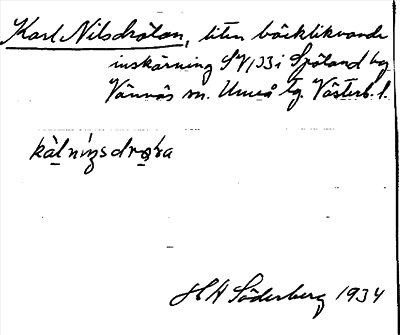 Karl Nilsdrôlan, liten bäckliknande
inskärning S V 133 i Spöland by
Vännäs sn. Umeå tg. Västerb. l.
kàl nígsdrøɫa
H A Söderberg 1934